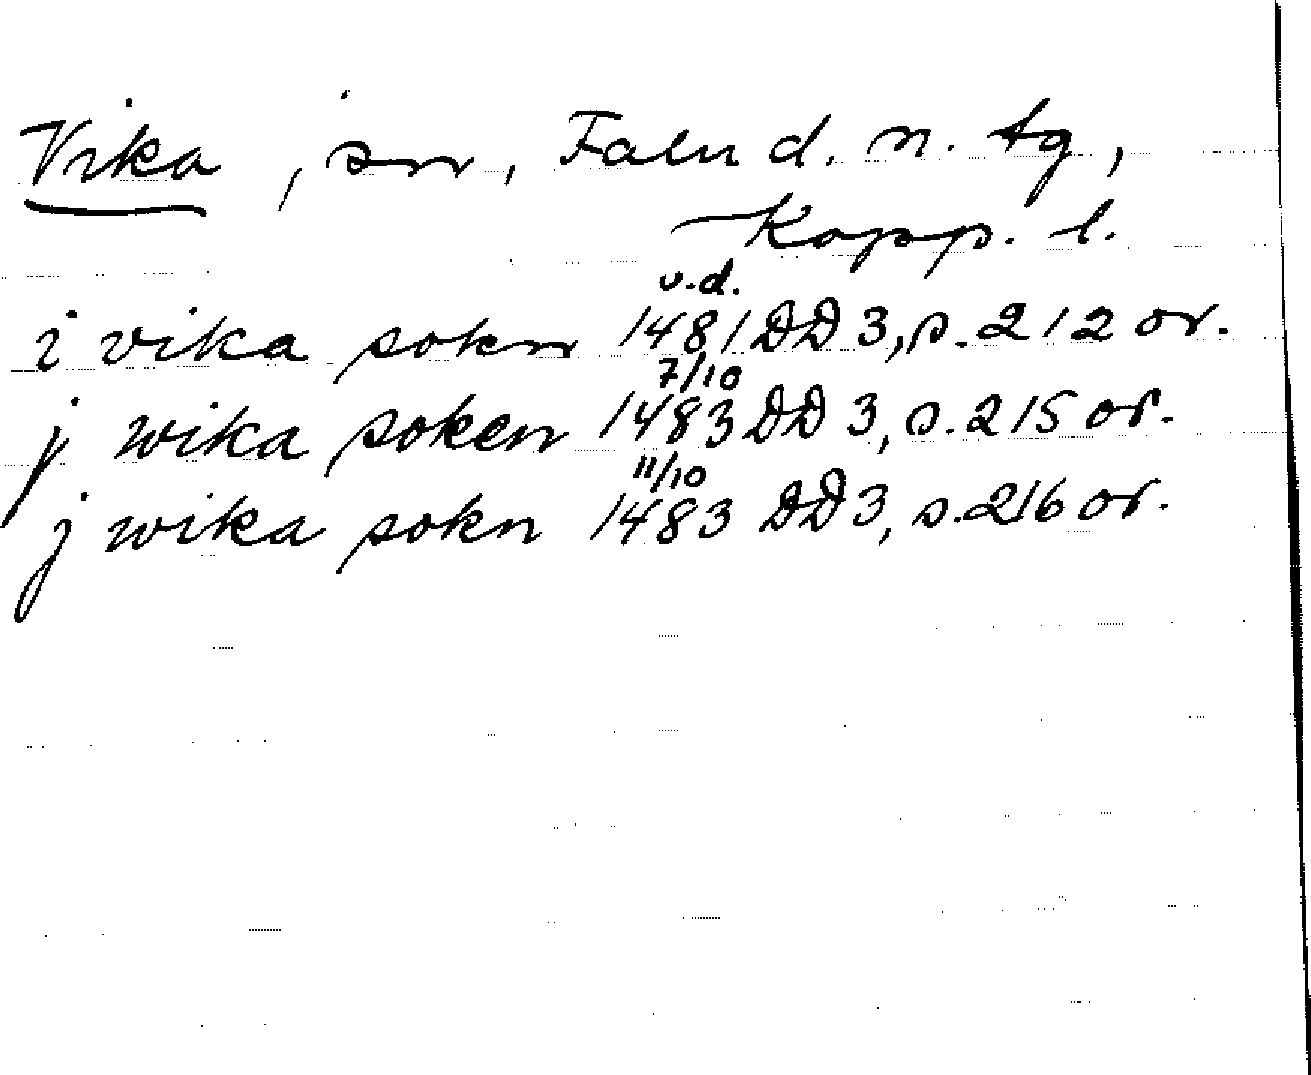 Vika, sn, Falu d. n. tg,
Kopp. l.
i vika sokn u.d. 1481 DD 3, s. 212 or.
j wika soken 7/10 1483 DD 3, s. 215 or.
j wika sokn 11/10 1483 DD 3, s. 216 or.